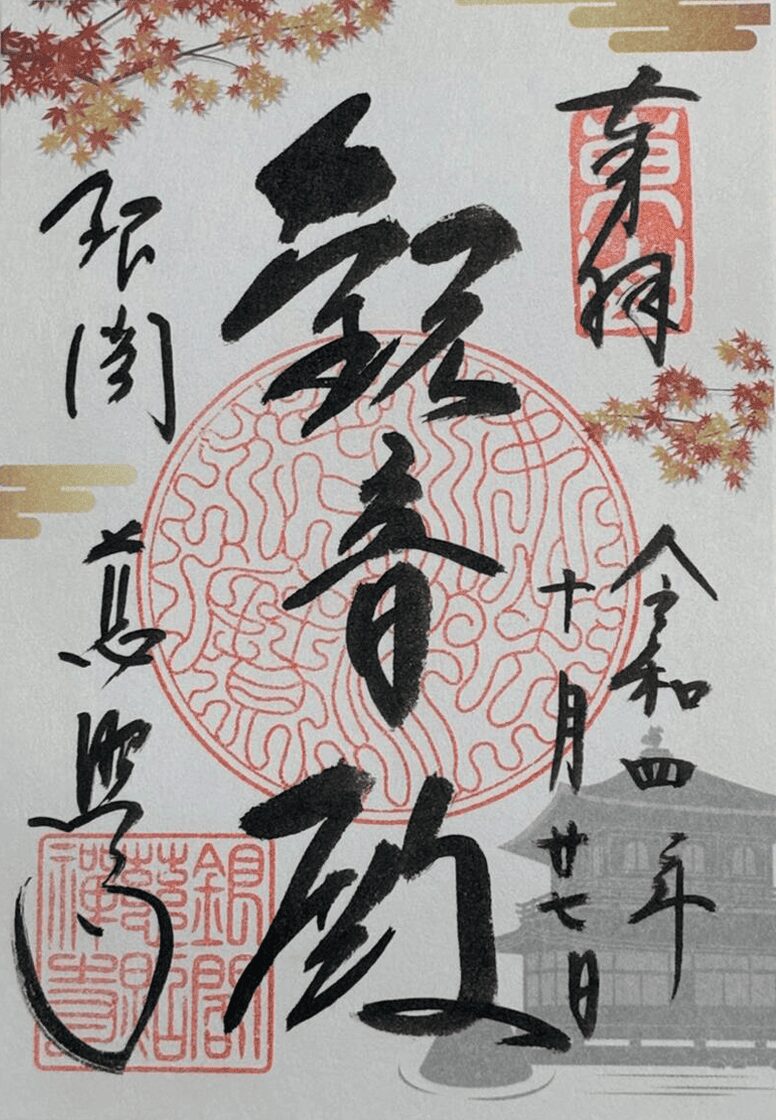 奉拝
東山
令和四年
十月廿七日
観音殿
銀閣
慈照寺
銀閣
慈照
禪寺